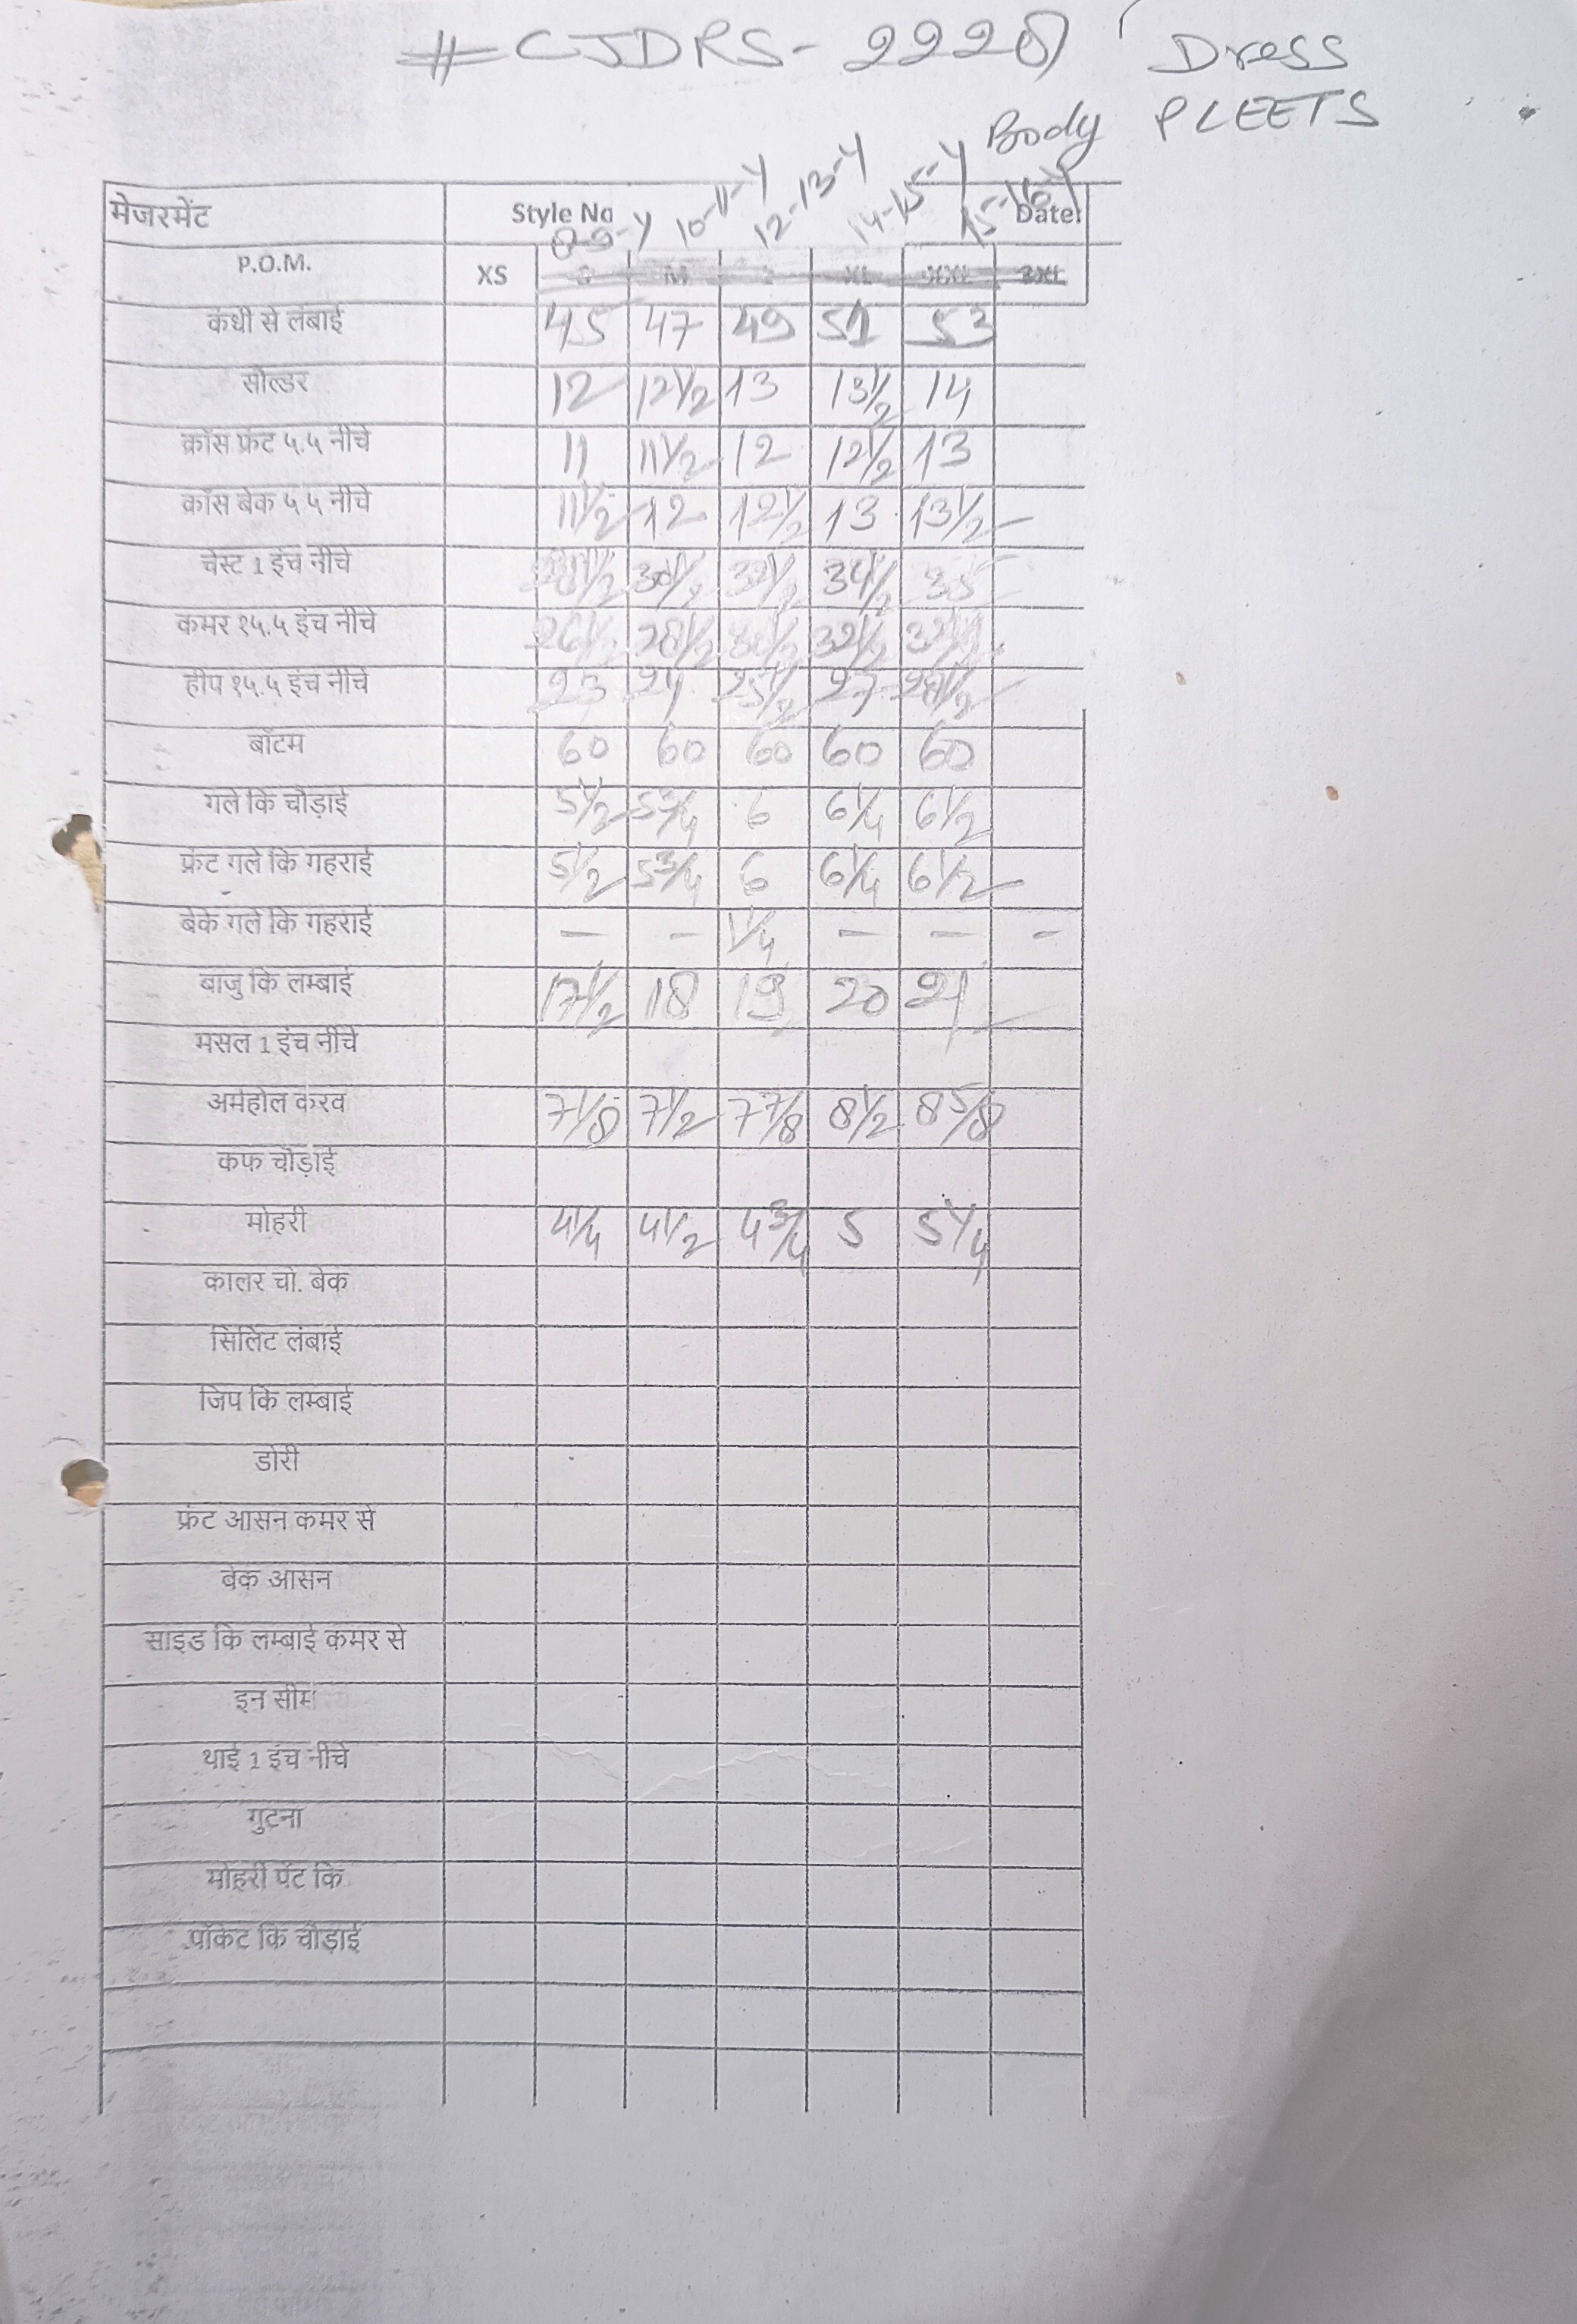 #CJDRS-2228 Dress
Body PLEETS
8-9-Y 10-11-Y 12-13-Y 14-15-Y 15-16-Y
मेजरमेंट Style No Date:
P.O.M. XS M XL XXL 3XL
कंधी से लंबाई 45 47 49 51 53
सोल्डर 12 12 1/2 13 13 1/2 14
क्रॉस फ्रंट ५.५ नीचे 11 11 1/2 12 12 1/2 13
क्रॉस बेक ५ ५ नीचे 11 1/2 12 12 1/2 13 13 1/2
चेस्ट 1 इंच नीचे 30 1/2 32 1/2 34 1/2 35
कमर १५.५ इंच नीचे 26 1/2 28 1/2 30 1/2 32 1/2
हीप १५.५ इंच नीचे 23 24 25 1/2 27 28 1/2
बॉटम 60 60 60 60 60
गले कि चौड़ाई 5 1/2 5 3/4 6 6 1/4 6 1/2
फ्रंट गले कि गहराई 5 1/2 5 3/4 6 6 1/4 6 1/2
बेक गले कि गहराई - - 1/4 - - -
बाजु कि लम्बाई 17 1/2 18 19 20 21
मसल 1 इंच नीचे
अर्महोल करव 7 1/8 7 1/2 7 7/8 8 1/2 8 5/8
कफ चौड़ाई
मोहरी 4 1/4 4 1/2 4 3/4 5 5 1/4
कालर चो. बेक
सिलिट लंबाई
जिप कि लम्बाई
डोरी
फ्रंट आसन कमर से
बेक आसन
साइड कि लम्बाई कमर से
इन सीम
थाई 1 इंच नीचे
गुटना
मोहरी पेंट कि
पॉकेट कि चौड़ाई